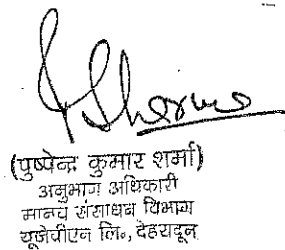 Sharma
(पुष्पेन्द्र कुमार शर्मा)
अनुभाग अधिकारी
मानव संसाधन विभाग
यूजेवीएन लि०, देहरादून